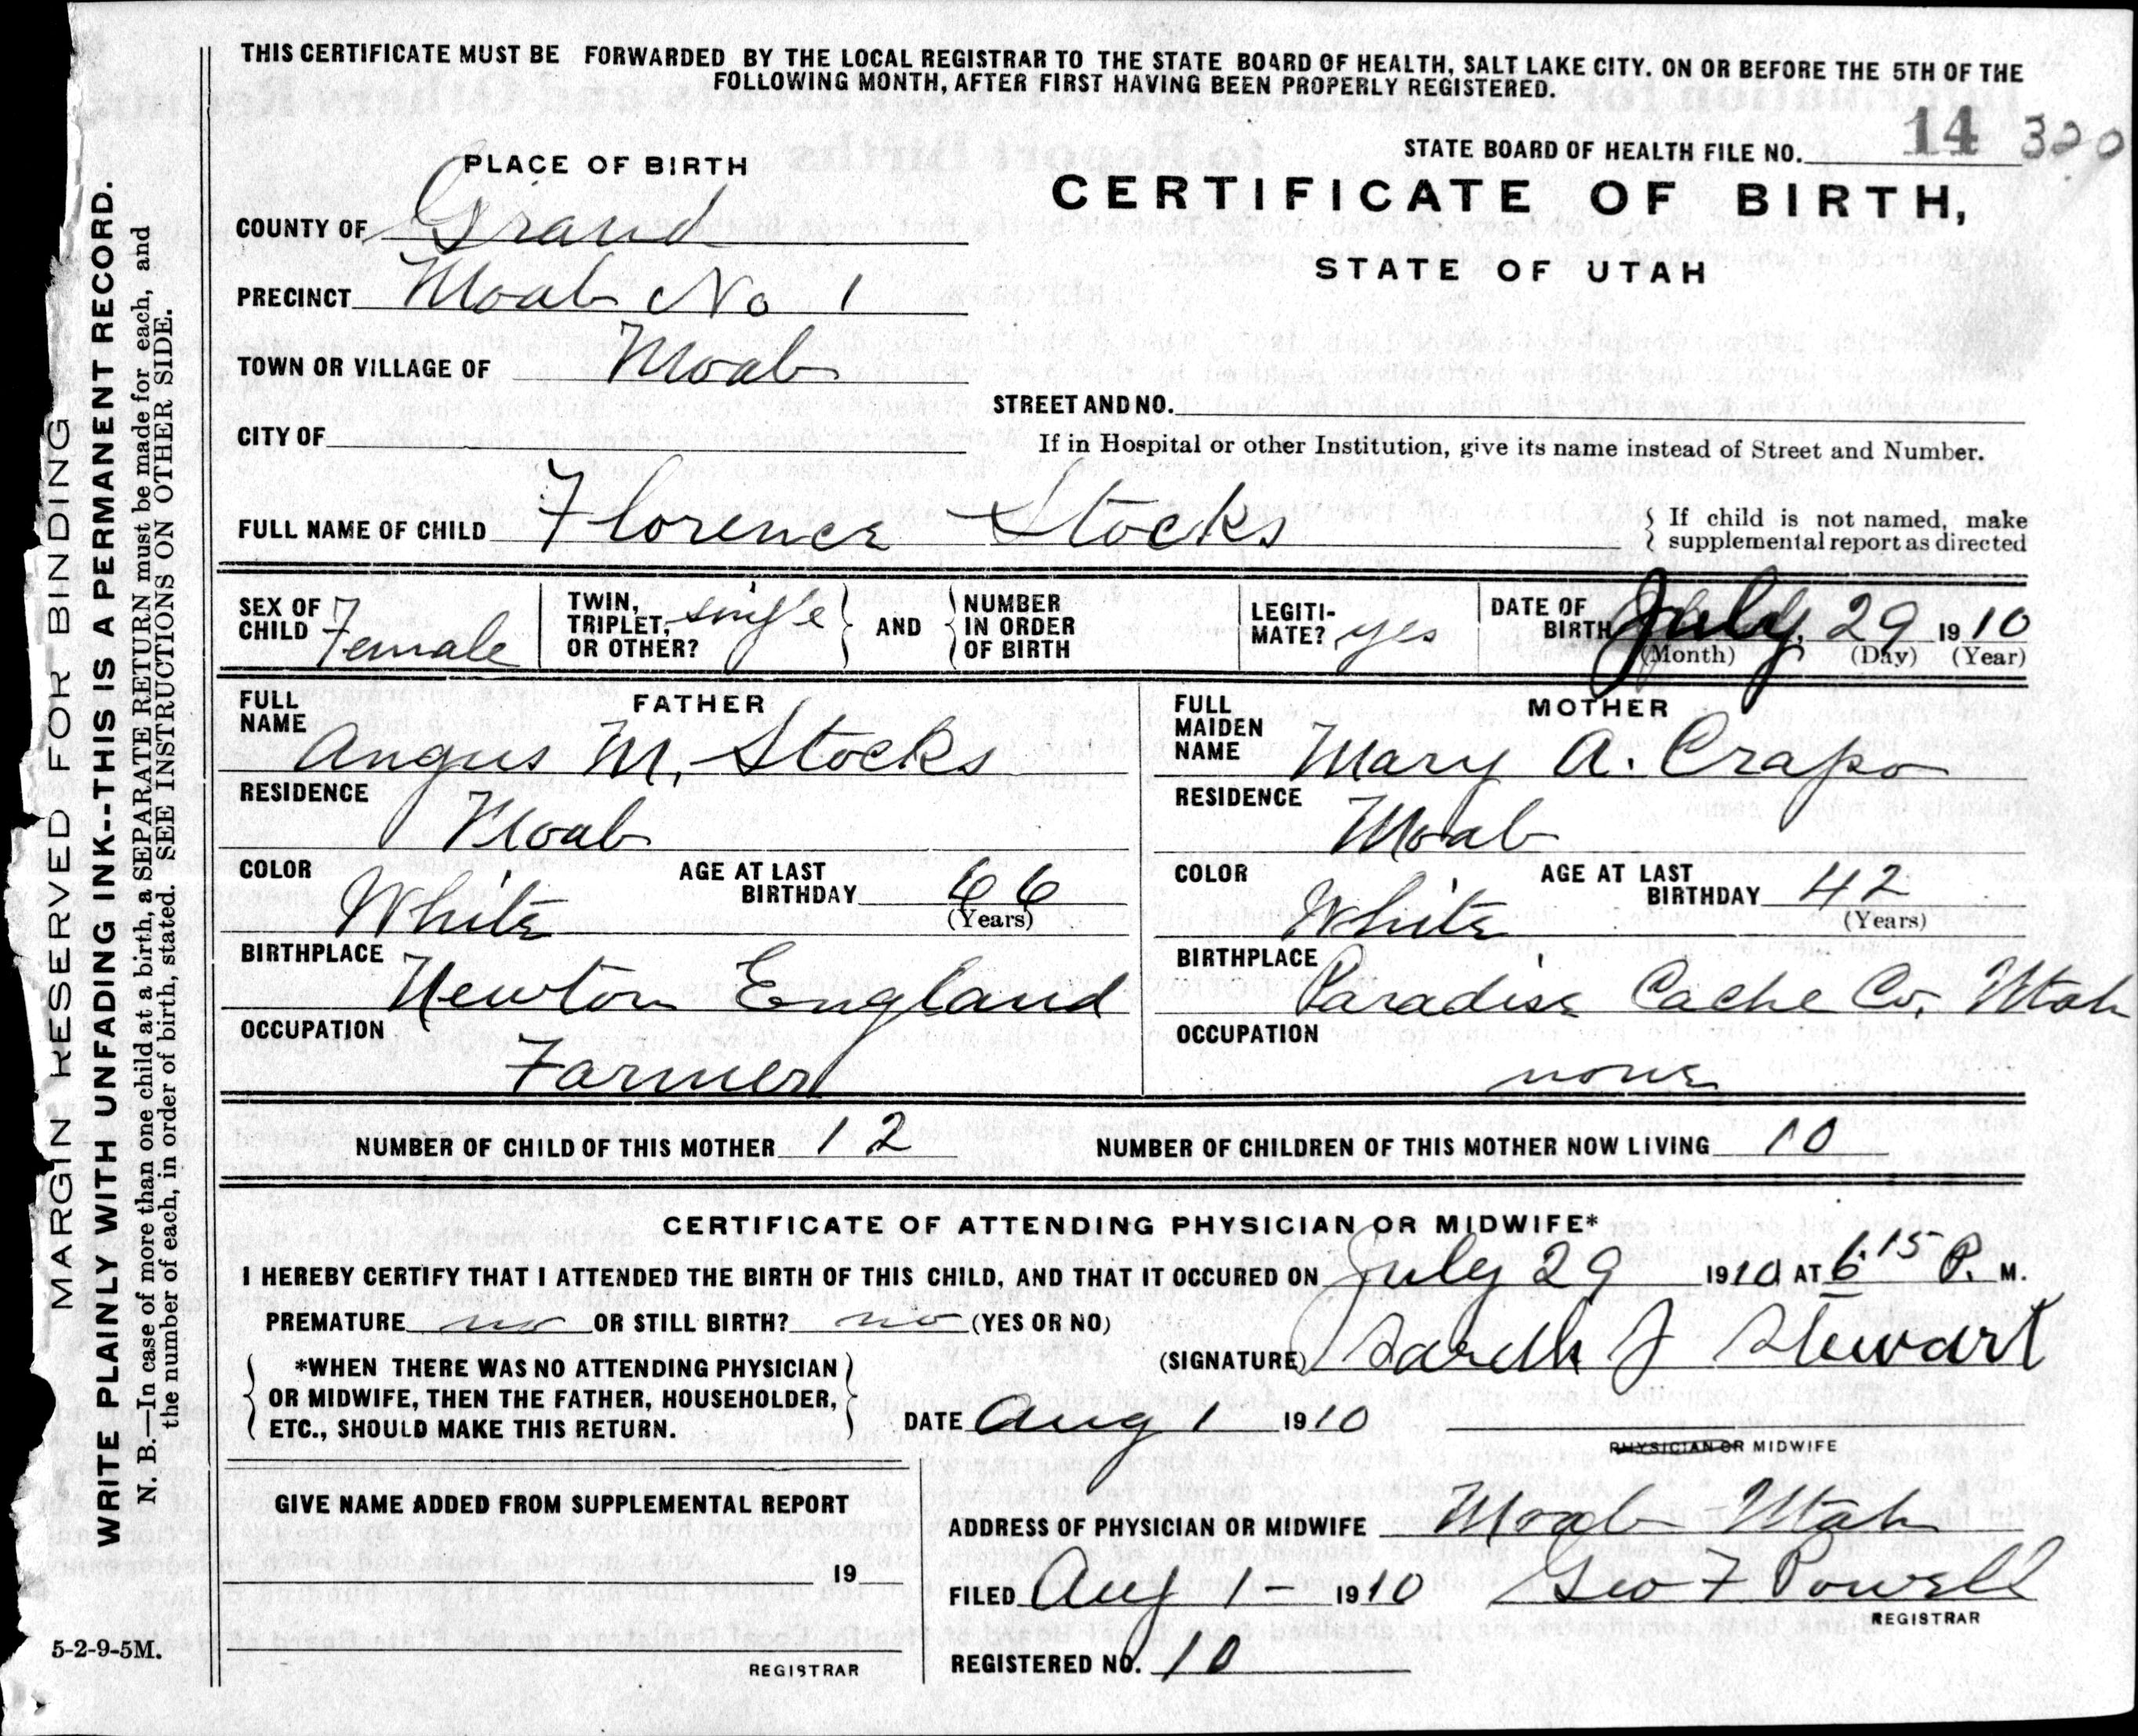 THIS CERTIFICATE MUST BE FORWARDED BY THE LOCAL REGISTRAR TO THE STATE BOARD OF HEALTH, SALT LAKE CITY. ON OR BEFORE THE 5TH OF THE
FOLLOWING MONTH, AFTER FIRST HAVING BEEN PROPERLY REGISTERED.
STATE BOARD OF HEALTH FILE NO. 14 320
PLACE OF BIRTH
CERTIFICATE OF BIRTH,
STATE OF UTAH
COUNTY OF Grand
PRECINCT Moab No 1
TOWN OR VILLAGE OF Moab
STREET AND NO.
CITY OF
If in Hospital or other Institution, give its name instead of Street and Number.
FULL NAME OF CHILD Florence Stocks
If child is not named, make
supplemental report as directed
SEX OF CHILD Female
TWIN, TRIPLET, OR OTHER? single
AND
NUMBER IN ORDER OF BIRTH
LEGITI-MATE? yes
DATE OF BIRTH July, 29 1910
(Month) (Day) (Year)
FATHER
FULL NAME Angus M. Stocks
RESIDENCE
Moab
COLOR White
AGE AT LAST BIRTHDAY 66
(Years)
BIRTHPLACE Newton England
OCCUPATION
Farmer
MOTHER
FULL MAIDEN NAME Mary A. Crapo
RESIDENCE
Moab
COLOR White
AGE AT LAST BIRTHDAY 42
(Years)
BIRTHPLACE Paradise Cache Co. Utah
OCCUPATION
none
NUMBER OF CHILD OF THIS MOTHER 12 NUMBER OF CHILDREN OF THIS MOTHER NOW LIVING 10
CERTIFICATE OF ATTENDING PHYSICIAN OR MIDWIFE*
I HEREBY CERTIFY THAT I ATTENDED THE BIRTH OF THIS CHILD, AND THAT IT OCCURED ON July 29 1910 AT 6:15 P. M.
PREMATURE no OR STILL BIRTH? no (YES OR NO)
*WHEN THERE WAS NO ATTENDING PHYSICIAN
OR MIDWIFE, THEN THE FATHER, HOUSEHOLDER,
ETC., SHOULD MAKE THIS RETURN.
(SIGNATURE) Sarah J Stewart
DATE Aug 1 1910
PHYSICIAN OR MIDWIFE
GIVE NAME ADDED FROM SUPPLEMENTAL REPORT
19
REGISTRAR
ADDRESS OF PHYSICIAN OR MIDWIFE Moab Utah
FILED Aug 1- 1910 Geo F Powell
REGISTRAR
REGISTERED NO. 10
5-2-9-5M.
MARGIN RESERVED FOR BINDING
WRITE PLAINLY WITH UNFADING INK--THIS IS A PERMANENT RECORD.
N. B.—In case of more than one child at a birth, a SEPARATE RETURN must be made for each, and
the number of each, in order of birth, stated. SEE INSTRUCTIONS ON OTHER SIDE.